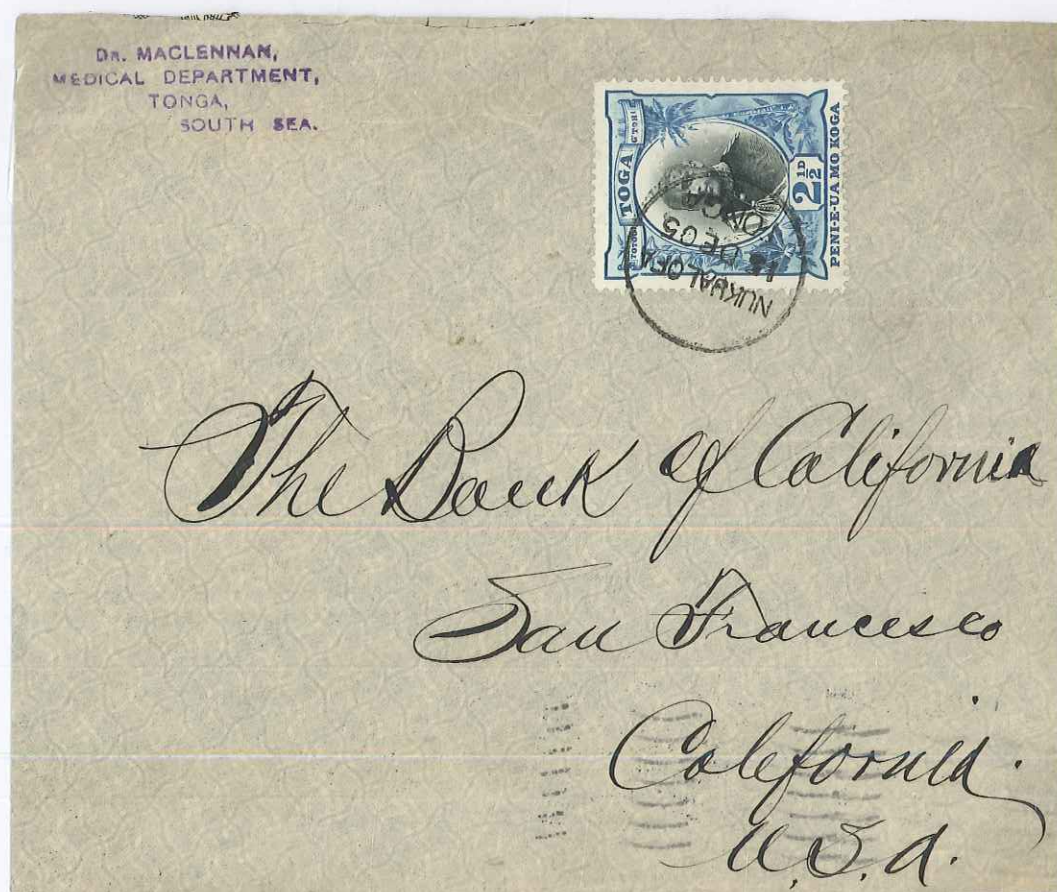 DR. MACLENNAN,
MEDICAL DEPARTMENT,
TONGA,
SOUTH SEA.
TOGA
2½D
PENI-E-UA MO KOGA
NUKUALOFA
DE 05
TONGA
The Bank of California
San Francesco
California.
U.S.A.